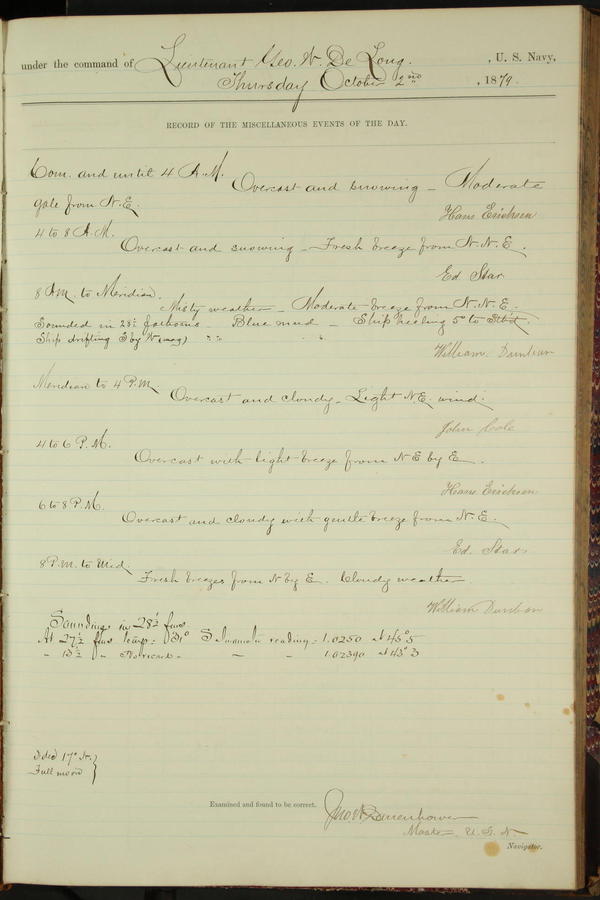 under the command of Lieutenant Geo. W. De Long. , U. S. Navy,
Thursday October 2nd , 1879.
RECORD OF THE MISCELLANEOUS EVENTS OF THE DAY.
Com. and until 4 A.M.
Overcast and snowing – Moderate
gale from N.E.
Hans Erichsen
4 to 8 A.M.
Overcast and snowing – Fresh breeze from N.N.E.
Ed Star
8 A.M. to Meridian.
Misty weather – Moderate breeze from N.N.E.
Sounded in 28½ fathoms – Blue mud – Ship heeling 5° to Stb'd.
Ship drifting S by W (mag)
William Dunbar
Meridian to 4 P.M.
Overcast and cloudy – Light N.E. wind.
John Cole
4 to 6 P.M.
Overcast with light breeze from N E by E.
Hans Erichsen
6 to 8 P.M.
Overcast and cloudy with gentle breeze from N.E.
Ed. Star
8 P.M. to Mid.
Fresh breezes from N by E. Cloudy weather
William Dunbar
Soundings in 28½ fms
At 27½ fms temp. 31° reading = 1.0250 at 45°5
" 13½ " – – 1.02390 at 43°3
17° N.
Full moon }
Examined and found to be correct.
Jno W Danenhower
Master U.S.N.
Navigator.